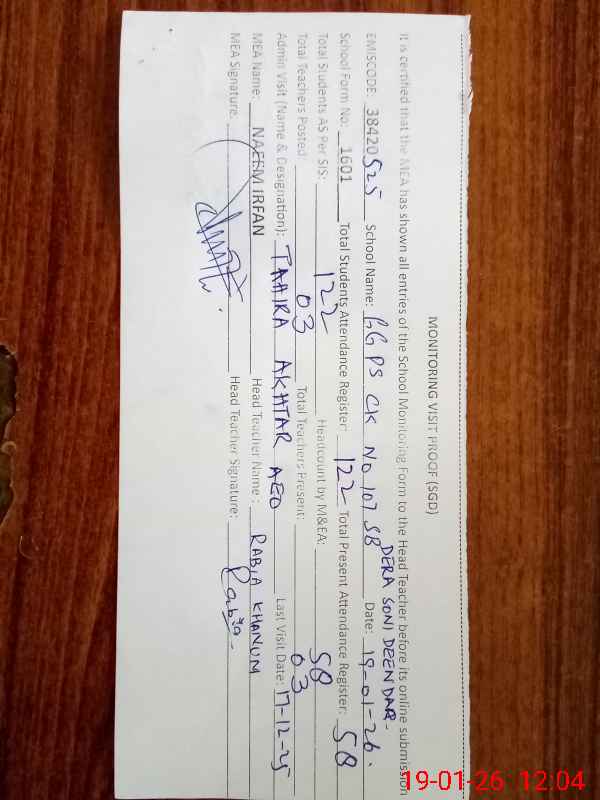 MONITORING VISIT PROOF (SGD)
It is certified that the MEA has shown all entries of the School Monitoring Form to the Head Teacher before its online submission
DERA SONI DEENDAR-
EMISCODE: 38420525 School Name: GGPS CK NO 107 SB Date: 19-01-26.
School Form No: 1601 Total Students Attendance Register: 122 Total Present Attendance Register: 58
Total Students AS Per SIS: 122 Headcount by M&EA: 58
Total Teachers Posted: 03 Total Teachers Present: 03
Admin Visit (Name & Designation): TAHIRA AKHTAR AEO Last Visit Date: 17-12-25
MEA Name: NAEEM IRFAN Head Teacher Name: RABIA KHANUM
MEA Signature: Head Teacher Signature: Rabia-
19-01-26 12:04